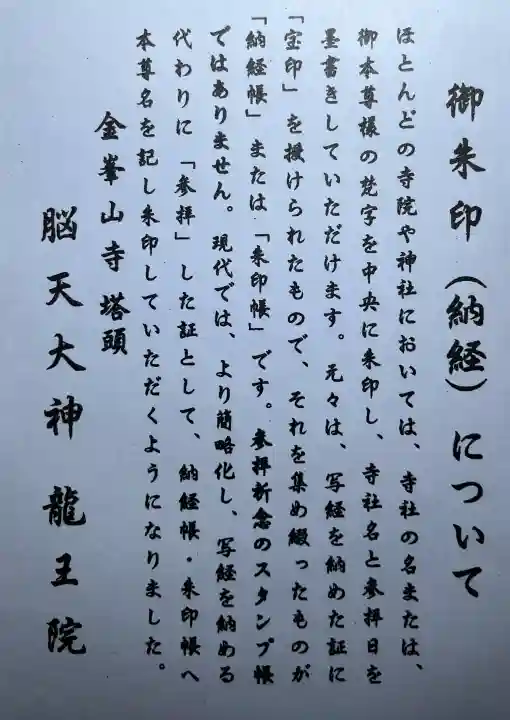 御朱印(納経)について
ほとんどの寺院や神社においては、寺社の名または、
御本尊様の梵字を中央に朱印し、寺社名と参拝日を
墨書きしていただけます。元々は、写経を納めた証に
「宝印」を授けられたもので、それを集め綴ったものが
「納経帳」または「朱印帳」です。参拝祈念のスタンプ帳
ではありません。現代では、より簡略化し、写経を納める
代わりに「参拝」した証として、納経帳・朱印帳へ
本尊名を記し朱印していただくようになりました。
金峯山寺塔頭
脳天大神 龍王院